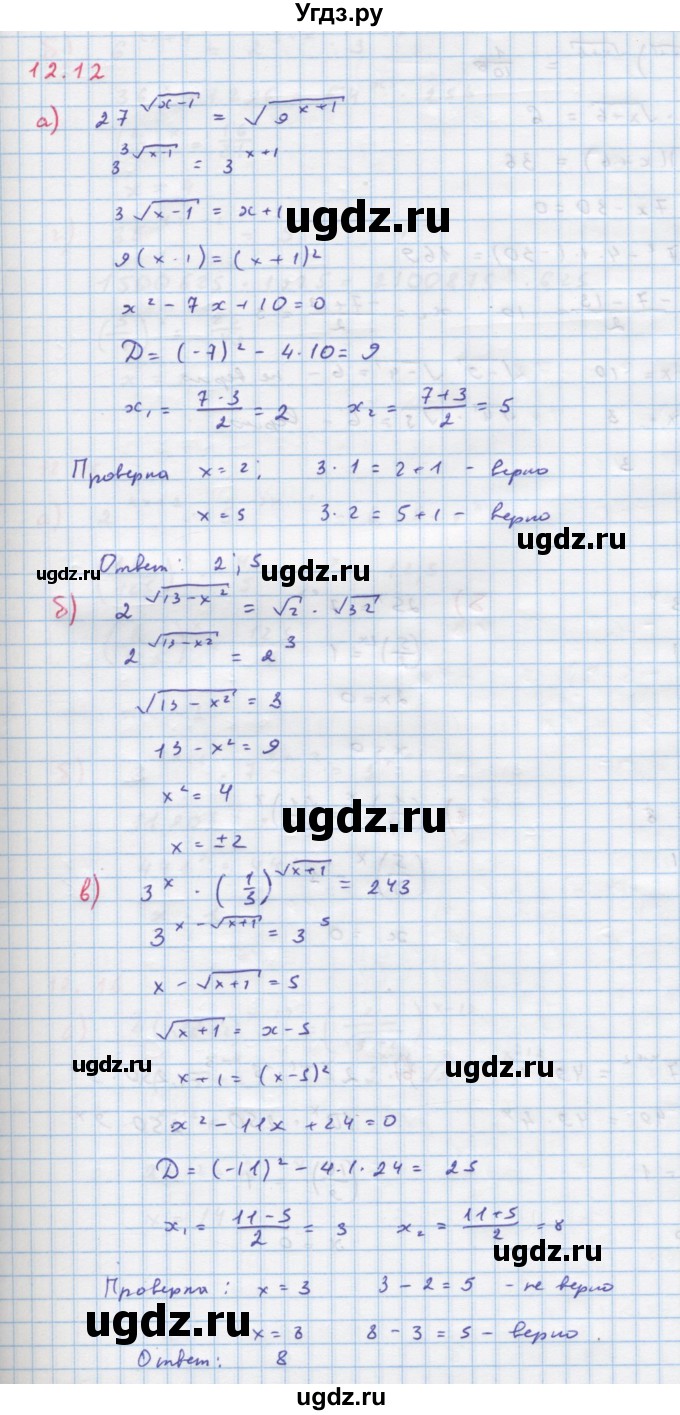 Угдз.ру
12.12
а) 27^√(x-1) = √(9^(x+1))
3^(3√(x-1)) = 3^(x+1)
3√(x-1) = x+1
ugdz.ru
9(x-1) = (x+1)²
x² - 7x + 10 = 0
D = (-7)² - 4·10 = 9
x₁ = (7-3)/2 = 2 x₂ = (7+3)/2 = 5
Проверка x = 2; 3·1 = 2+1 - верно
x = 5 3·2 = 5+1 - верно
ugdz.ru
Ответ: 2; 5
ugdz.ru
б) 2^√(13-x²) = √2 · √32
2^√(13-x²) = 2³
√(13-x²) = 3
13 - x² = 9
x² = 4
ugdz.ru
x = ±2
в) 3^x · (1/3)^√(x+1) = 243
3^(x-√(x+1)) = 3⁵
x - √(x+1) = 5
√(x+1) = x-5
ugdz.ru
ugdz.ru
x+1 = (x-5)²
x² - 11x + 24 = 0
D = (-11)² - 4·1·24 = 25
x₁ = (11-5)/2 = 3 x₂ = (11+5)/2 = 8
ugdz.ru
Проверка: x = 3 3 - 2 = 5 - не верно
ugdz.ru
x = 8 8 - 3 = 5 - верно.
Ответ: 8
ugdz.ru